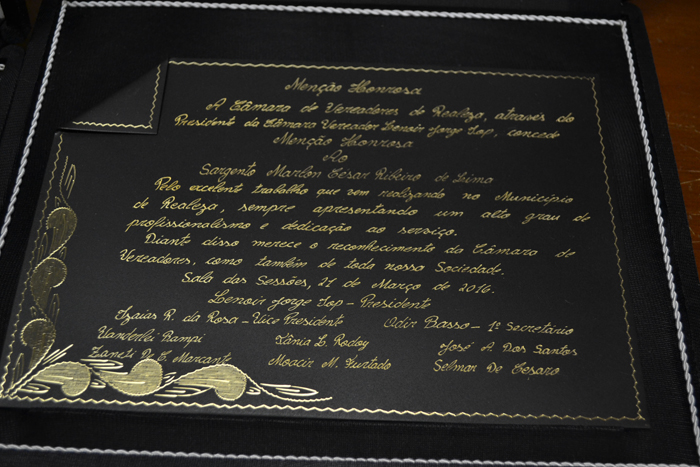 Menção Honrosa
A Câmara de Vereadores de Realeza, através do
Presidente da Câmara Vereador Lenoir Jorge Top, concede
Menção Honrosa
Ao
Sargento Marlon Cesar Ribeiro de Lima
Pelo excelente trabalho que vem realizando no Município
de Realeza, sempre apresentando um alto grau de
profissionalismo e dedicação ao serviço.
Diante disso merece o reconhecimento da Câmara de
Vereadores, como também de toda nossa Sociedade.
Sala das Sessões, 21 de Março de 2016.
Lenoir Jorge Top - Presidente
Izaias R. da Rosa - Vice Presidente Odir Basso - 1º Secretário
Vanderlei Rampi Tânia L. Rodoy José A. Dos Santos
Zaneti De C. Marcante Moacir M. Furtado Selmar De Cesaro